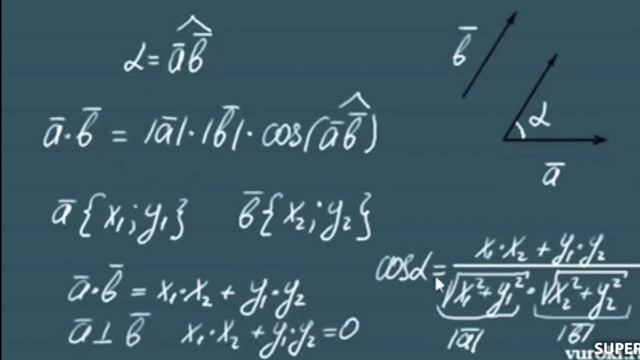 α = a̅b̅
b̅
α
a̅·b̅ = |a̅|·|b̅|·cos(a̅b̅)
a̅
a̅{x₁;y₁} b̅{x₂;y₂}
cosα = (x₁·x₂ + y₁·y₂) / (√(x₁²+y₁²) · √(x₂²+y₂²))
|a̅| |b̅|
a̅·b̅ = x₁·x₂ + y₁·y₂
a̅⊥b̅ x₁·x₂ + y₁·y₂ = 0
SUPER